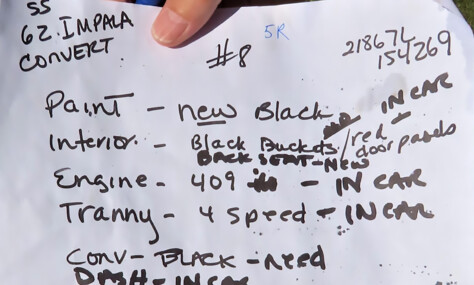 SS
62. IMPALA
CONVERT
#8
5R
218674
154269
Paint - new Black IN CAR
Interior - Black Buckets / red door panels
BACK SEAT - NEW
Engine - 409 - IN CAR
Tranny - 4 Speed - IN CAR
Conv - BLACK - need
DASH - IN CAR